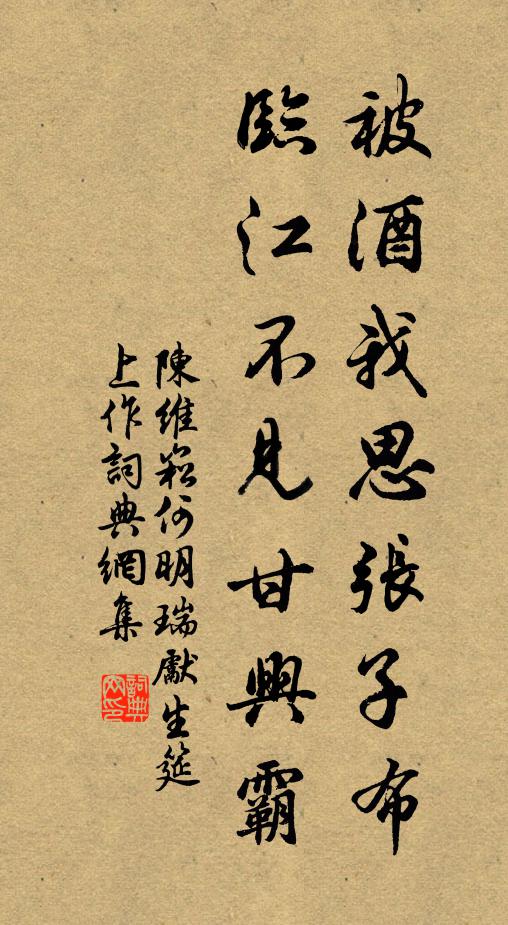 被酒我思張子布
臨江不見甘興霸
陳維崧何明瑞獻生筵
上作詞典網集